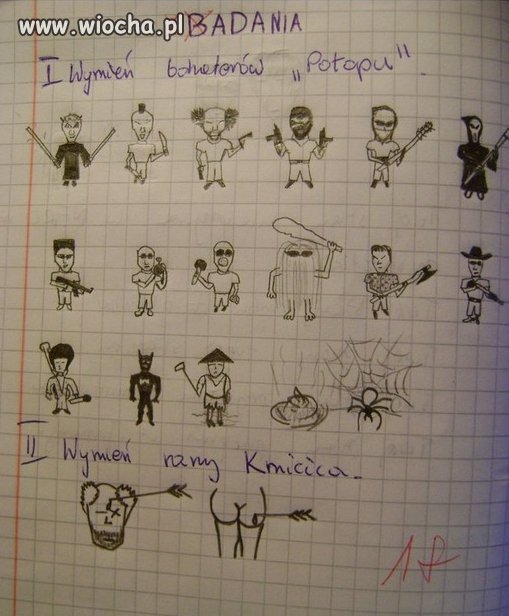 www.wiocha.pl
BADANIA
I Wymień bohaterów „Potopu”.
II Wymień rany Kmicica.